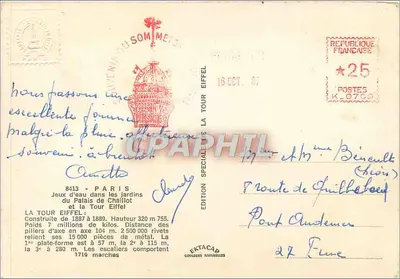 SOMMET
REPUBLIQUE
FRANCAISE
★25
POSTES
16 OCT.
EDITION SPECIALE DE LA TOUR EIFFEL
CPAPHIL
nous passons une
excellente journée
malgré la pluie. affectueux
souvenir. à bientôt
8413 - PARIS
Jeux d'eau dans les jardins
du Palais de Chaillot
et la Tour Eiffel
LA TOUR EIFFEL:
Construite de 1887 à 1889. Hauteur 320 m 755.
Poids 7 millions de kilos. Distance des
piliers d'axe en axe 104 m. 2 500 000 rivets
relient ses 15 000 pièces de métal. La
1re plate-forme est à 57 m, la 2e à 115 m,
la 3e à 280 m. Les escaliers comportent
1719 marches
EKTACAP
COULEURS NATURELLES
et Mme
7 route de
Pont Audemer
27 Eure